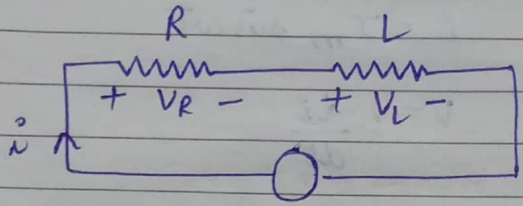 R L
+ VR - + VL -
i